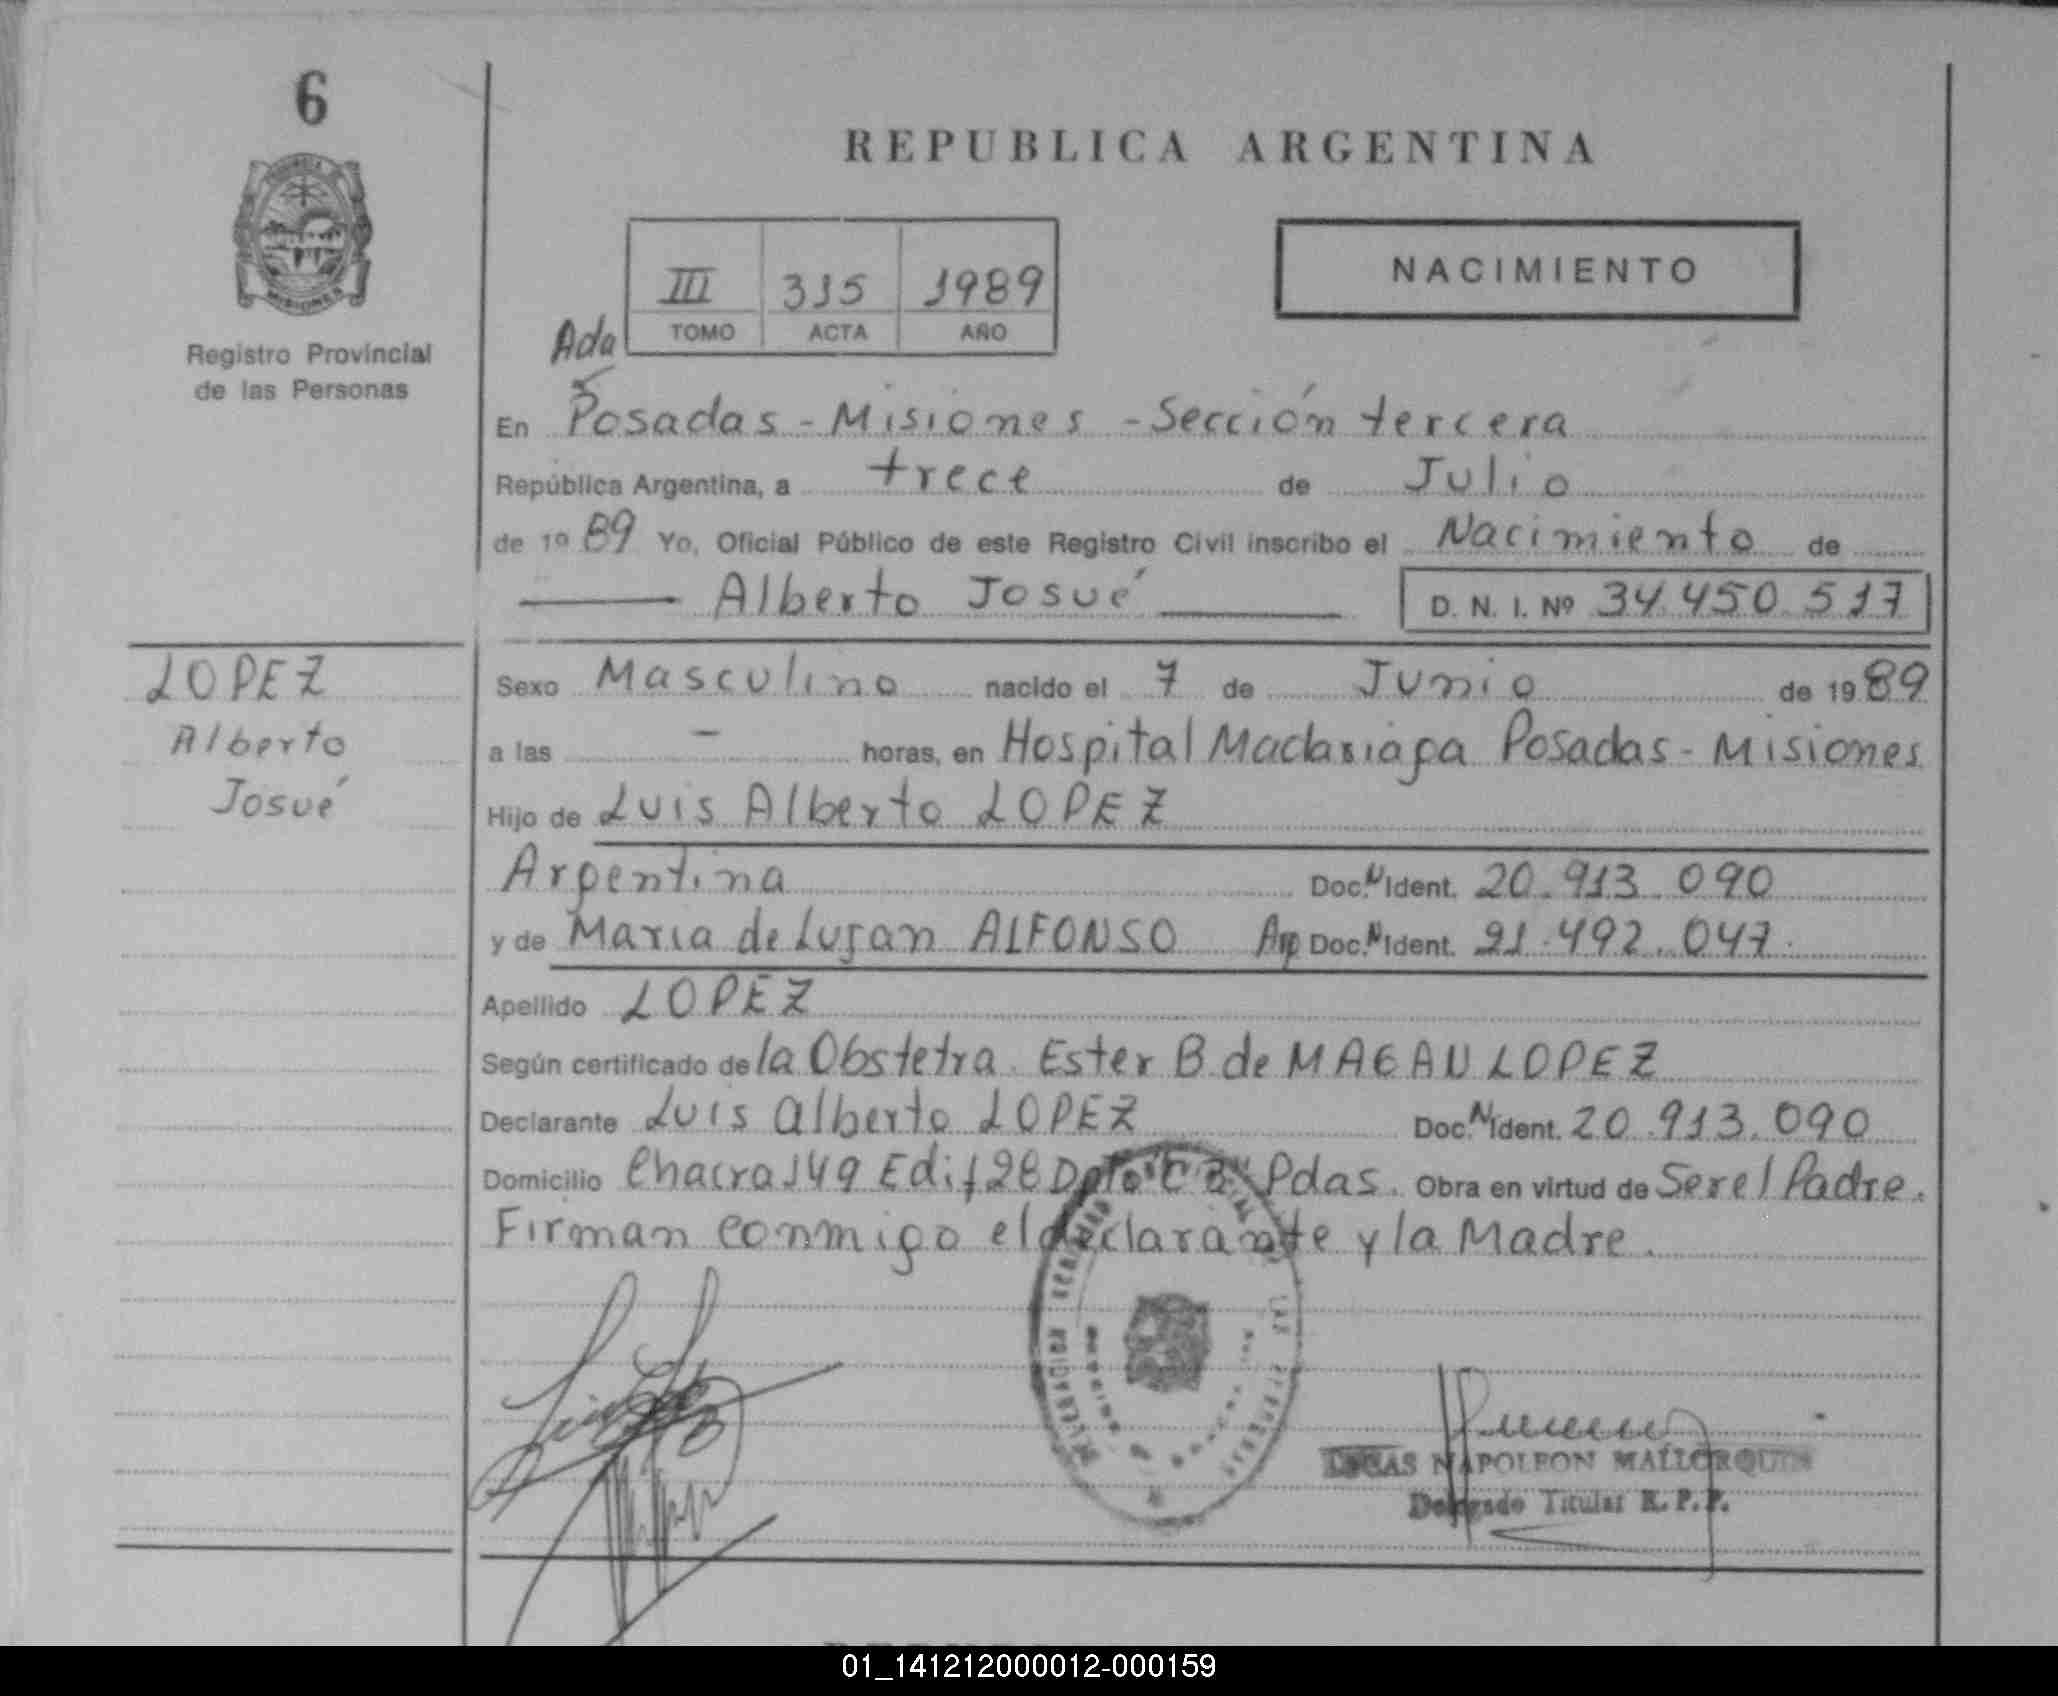 6
REPUBLICA ARGENTINA
NACIMIENTO
III 315 1989
TOMO ACTA AÑO
Registro Provincial
de las Personas
MISIONES
Ada
En Posadas - Misiones - Sección tercera
República Argentina, a trece de Julio
de 19 89 Yo, Oficial Público de este Registro Civil inscribo el Nacimiento de
Alberto Josué D. N. I. Nº 34.450.517
LOPEZ
Alberto
Josué
Sexo Masculino nacido el 7 de Junio de 19 89
a las - horas, en Hospital Madariaga Posadas - Misiones
Hijo de Luis Alberto LOPEZ
Argentina Doc. N Ident. 20.913.090
y de Maria de Lujan ALFONSO Arg Doc. N Ident. 21.492.047.
Apellido LOPEZ
Según certificado de la Obstetra Ester B. de LOPEZ
Declarante Luis Alberto LOPEZ Doc. N Ident. 20.913.090
Domicilio Chacra 149 Edif 28 Dpto Pdas. Obra en virtud de Ser el Padre.
Firman conmigo el declarante y la Madre.
LUCAS NAPOLEON MALLORQUIN
Delegado Titular R. P. P.
01_141212000012-000159